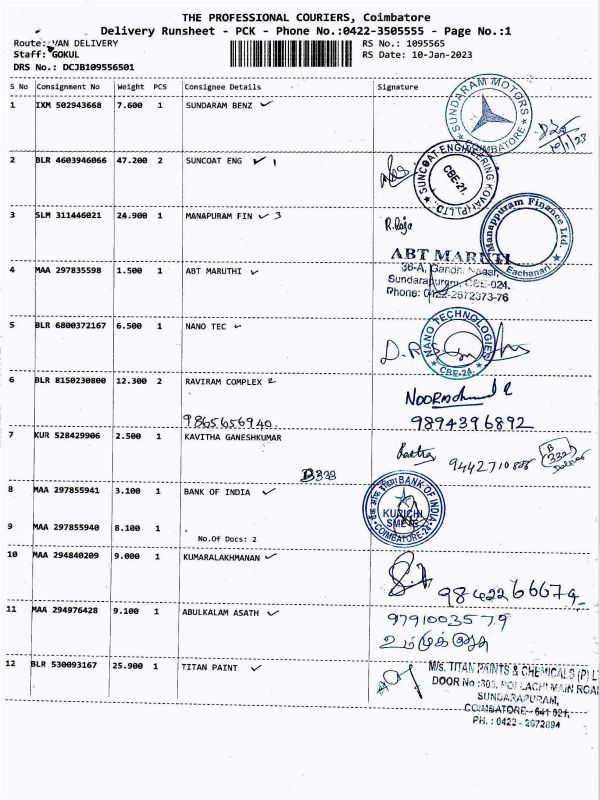 THE PROFESSIONAL COURIERS, Coimbatore
Delivery Runsheet - PCK - Phone No.:0422-3505555 - Page No.:1
Route: VAN DELIVERY
RS No.: 1095565
Staff: GOKUL
RS Date: 10-Jan-2023
DRS No.: DCJB109556501
S No Consignment No Weight PCS Consignee Details Signature
1 IXM 502943668 7.600 1 SUNDARAM BENZ
SUNDARAM MOTORS
COIMBATORE
10/1/23
2 BLR 4603946066 47.200 2 SUNCOAT ENG 1
SUNCOAT ENGINEERING KOVAI (P) LTD.
CBE-21.
3 SLM 311446021 24.900 1 MANAPURAM FIN 3
R. Raja
Manappuram Finance Ltd.
Eachanari
4 MAA 297835598 1.500 1 ABT MARUTHI
ABT MARUTI
36-A, Gandhi Nagar,
Sundarapuram, CBE-024.
Phone: 0422-2672373-76
5 BLR 6800372167 6.500 1 NANO TEC
NANO TECHNOLOGIES
CBE-24.
6 BLR 8150230800 12.300 2 RAVIRAM COMPLEX 2
9865656940.
9894396892
7 KUR 528429906 2.500 1 KAVITHA GANESHKUMAR
B338
B
332
8 MAA 297855941 3.100 1 BANK OF INDIA
BANK OF INDIA
KURICHI
SME
COIMBATORE-24
9 MAA 297855940 8.100 1
No.Of Docs: 2
10 MAA 294840209 9.000 1 KUMARALAKHMANAN
9842266674
11 MAA 294976428 9.100 1 ABULKALAM ASATH
9791003579
12 BLR 530093167 25.900 1 TITAN PAINT
M/s. TITAN PAINTS & CHEMICALS (P) L
DOOR No :303, POLLACHI MAIN ROA
SUNDARAPURAM,
COIMBATORE - 641 021.
PH. : 0422 - 2672894